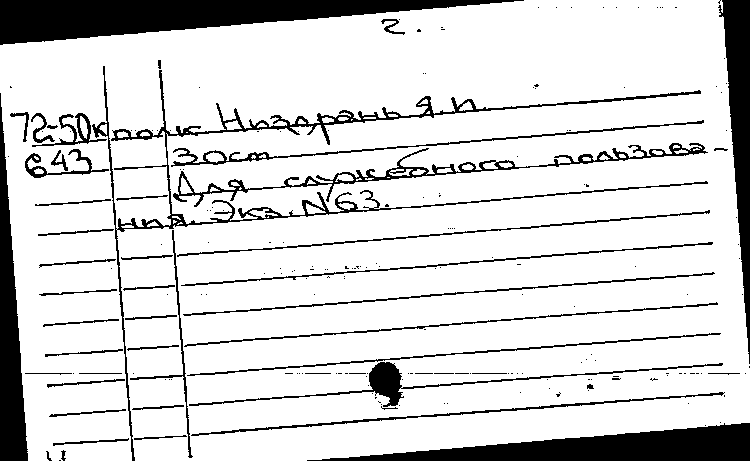 2.
72-50к полк Низдрань Я.И.
643 30ст
Для служебного пользова-
ния. Экз. N63.